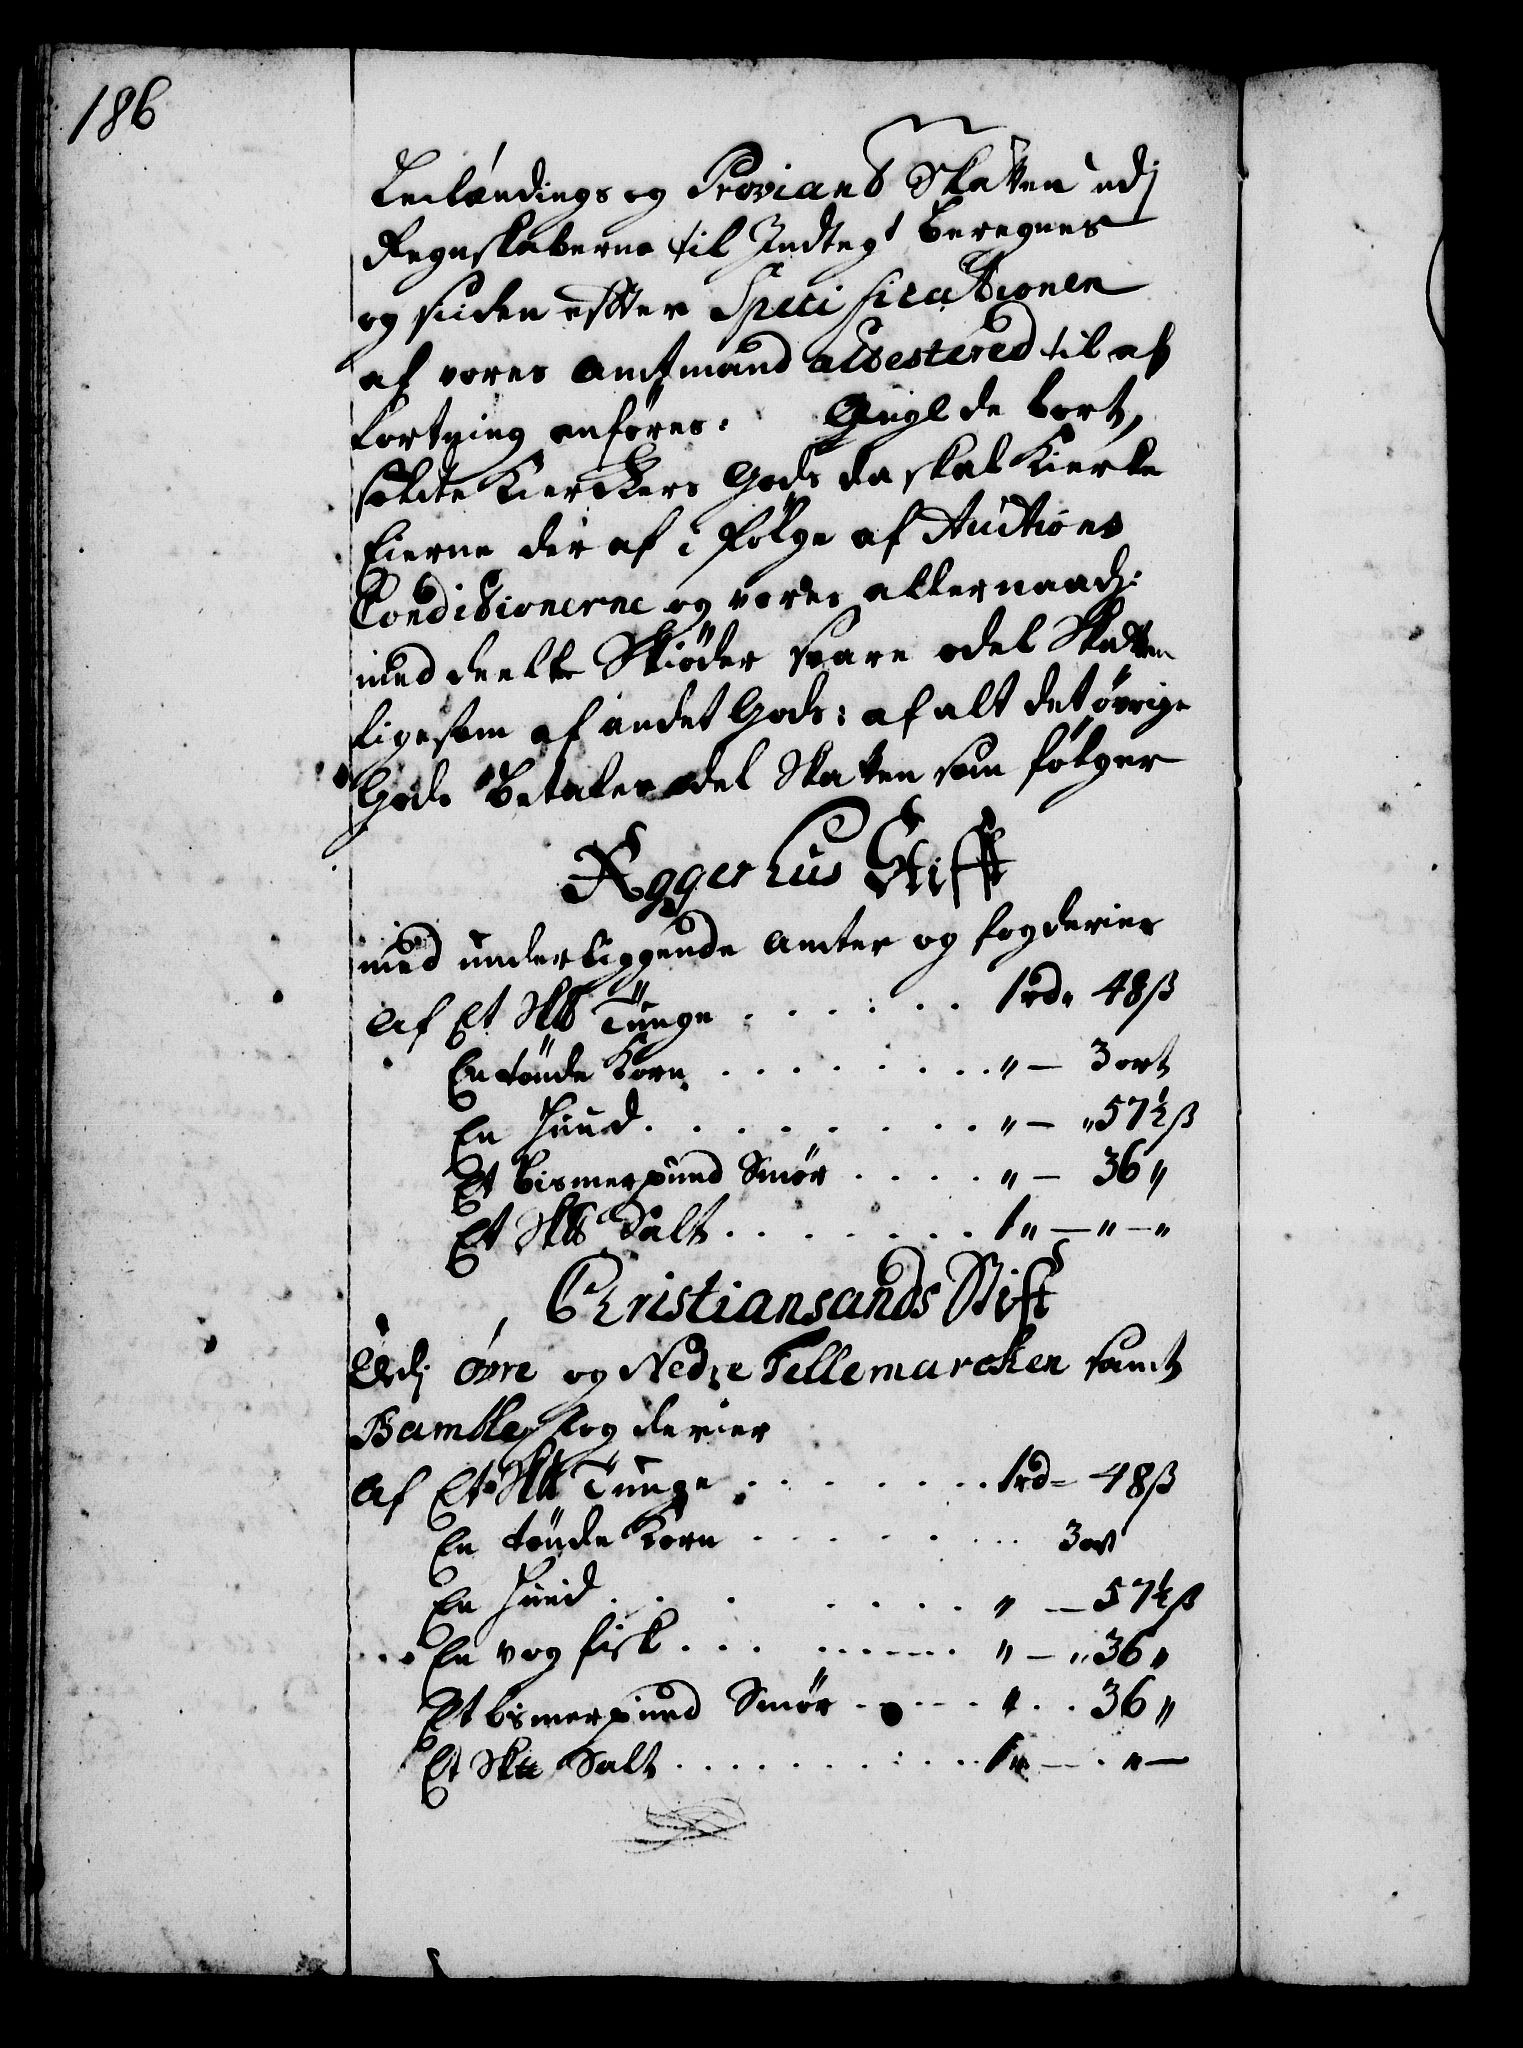 186
Leilændings og Proviant Skatten udj
Regnskaberne til Indtegt beregnes
og siden efter Specificationen
af vores Amtmand attestered til af
kortning anføres. Angl de bort,
solte Kierckers Gods da skal Kierke
Eierne der af i følge af Auctions
Conditionerne og vores allernaad:
meddeelte Skiøder svare odel Skatten
ligesom af andet Gods: af alt det øvrige
Gods betales odel Skatten som følger
Aggerhus Stifft
med underliggende Amter og fogderier
Af Et Sk℔ Tunge . . . . . . 1 rd. 48 ß
En tønde Korn . . . . . . . . „ — 3 ort
En Huud . . . . . . . . „ — „ 57½ ß
Et bismerpund Smør . . . . „ — 36 „
Et Sk℔ Salt . . . . . . . 1 „ — „ — „
Christiansands Stift
Udj Øvre og Nedre Tellemarcken samt
Bamble fogderier
Af Et Sk℔ Tunge . . . . . . . 1 rd = 48 ß
En tønde Korn . . . . . . . 3 ort
En Huud . . . . . . . „ — 57½ ß
En vog fisk . . . . . . . . . „ — „ 36 „
Et bismerpund Smør . . . . . „ . . 36 „
Et Sk℔ Salt . . . . . . . . . . . 1 „ — . „ —